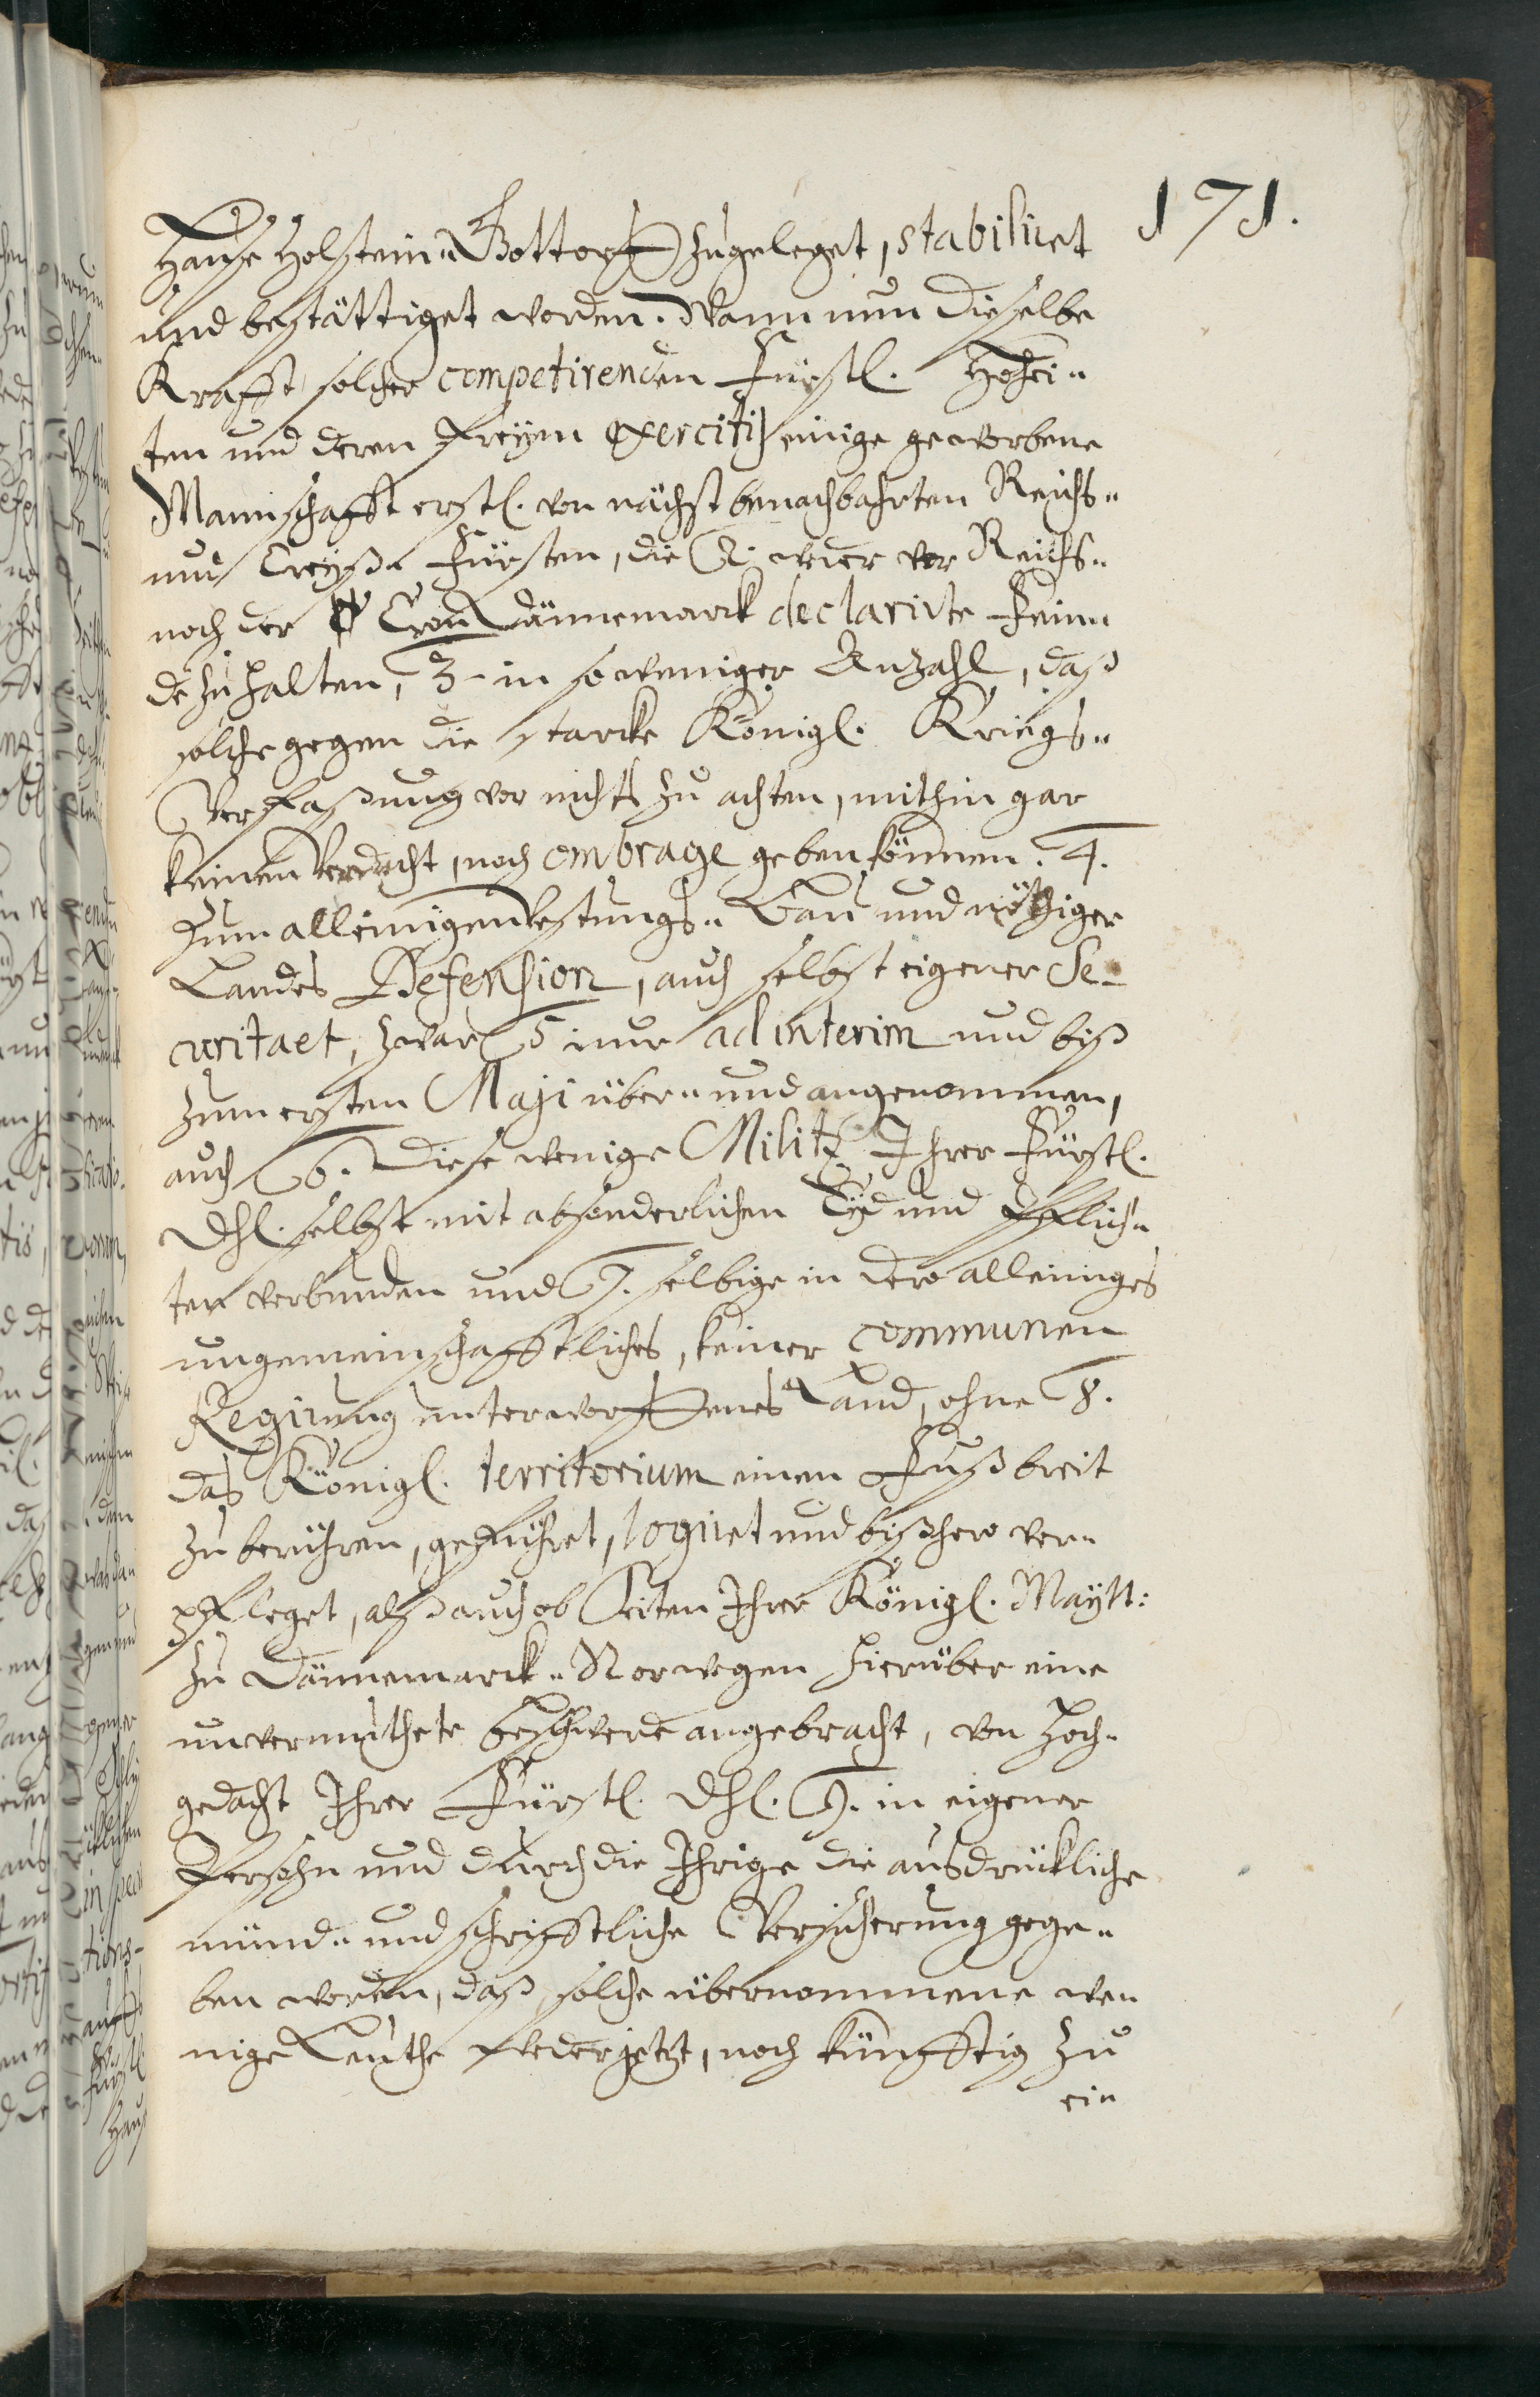 171.
Hause Holstein„ Gottorff zugeleget, stabiliret
und bestättiget worden. Wann nun dieselbe
Krafft solcher competirenden Fürstl. Hohei„
ten und deren freyen exercitij einige geworbene
Mannschafft erstl. von nächst benachbahrten Reichs„
und Creyß„ Fürsten, die 2. weder vor Reichs„
noch der Cron Dännemarck declarirte Fein„
de zu halten, 3. in so weniger Anzahl, daß
solche gegen die starcke Königl. Kriegs„
Verfaßung vor nichts zu achten, mithin gar
keinen Verdacht, noch ombrage geben können. 4.
Zum alleinigen Vestungs„ Bau und nöthiger
Landes Defension, auch selbst eigener Se-
curitaet, zwar 5. nur ad interim und biß
zum ersten Maji über„ und angenommen,
auch 6. diese wenige Militz Ihrer Fürstl.
Dhl. selbst mit absonderlichen Eyd und Pflich„
ten verbunden und 7. selbige in dero alleiniges
ungemeinschafftliches, keiner communen
Regirung unterworffenes Land, ohne 8.
das Königl. territorium einen Fuß breit
zu berühren, geführet, logiret und bißhero ver„
pfleget, alß auch ob Seiten Ihrer Königl. Maytt:
zu Dännemarck„ Norwegen hierüber eine
unvermuthete beschwerde angebracht, von Hoch„
gedacht Ihrer Fürstl. Dhl. 9. in eigener
Persohn und durch die Ihrige die ausdrückliche
münd„ und schrifftliche Versicherung gege„
ben worden, daß solche übernommene we„
nige Leuthe weder jetzt, noch künfftig zu
ein